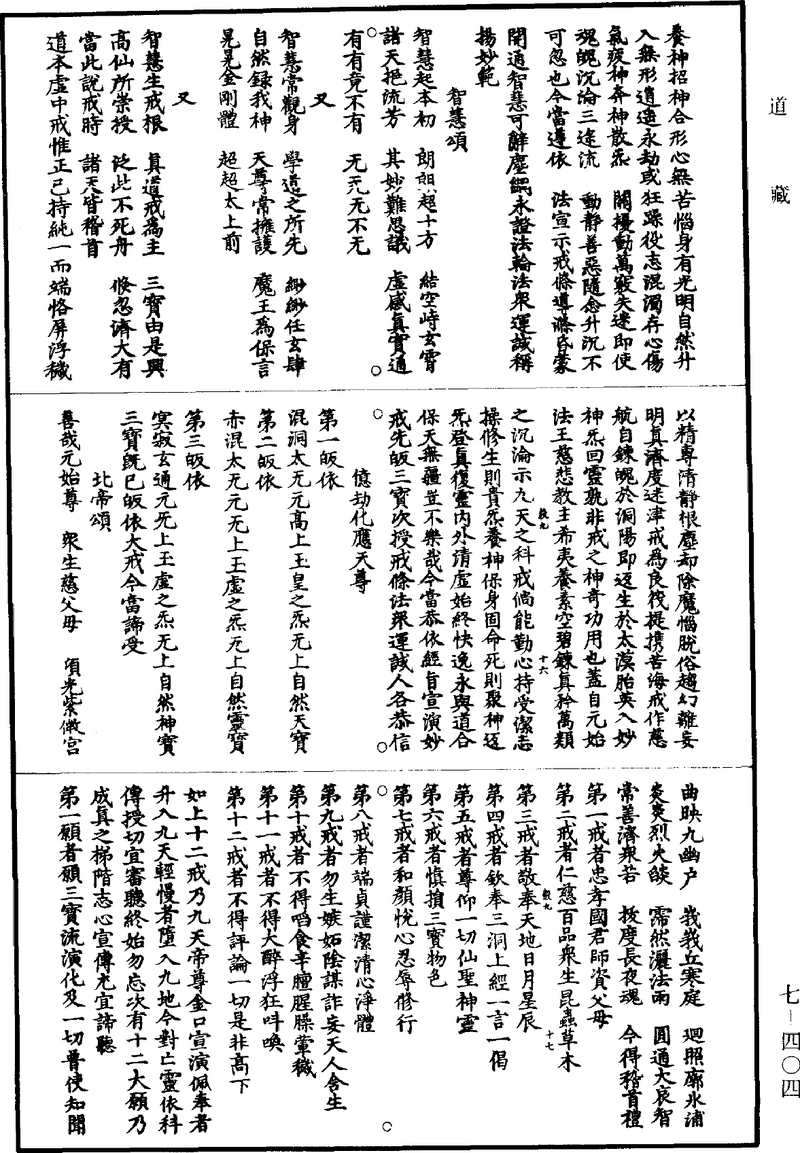 道藏
七—四〇四
養神招神合形心無苦惱身有光明自然升
入無形逍遙永劫或狂躁役志混濁存心傷
氣疲神奔神散炁 關擾動萬竅失迷即使
魂魄沉淪三途流 動靜善惡隨念升沉不
可忽也今當遵依 法宣示戒條導滌昏蒙
開通智慧可辭塵網永證法輪法眾運誠稱
揚妙範
智慧頌
智慧起本初 朗朗超十方 結空峙玄霄
諸天挹流芳 其妙難思議 虛感真實通
有有竟不有 无无无不无
又
智慧常觀身 學道之所先 緲緲任玄肆
自然錄我神 天尊常擁護 魔王為保言
晃晃金剛體 超超太上前
又
智慧生戒根 真道戒為主 三寶由是興
高仙所崇授 從此不死舟 倏忽濟大有
當此說戒時 諸天皆稽首
道本虛中戒惟正己持純一而端恪屏浮穢
以精專清靜根塵却除魔惱脫俗超幻離妄
明真濟度迷津戒為良筏提携苦海戒作慈
航自鍊魄於洞陽即返生於太漠胎英入妙
神炁回靈孰非戒之神奇功用也蓋自元始
法王慈悲教主希夷養素空碧鍊真矜萬類
之沉淪示九天之科戒倘能勤心持受潔志
操修生則貴炁養神保身固命死則聚神返
炁登真復靈內外清虛始終快逸永與道合
保天無疆豈不樂哉今當恭依經旨宣演妙
戒先皈三寶次授戒條法眾運誠人各恭信
億劫化應天尊
第一皈依
混洞太无元高上玉皇之炁无上自然天寶
第二皈依
赤混太无元无上玉虛之炁无上自然靈寶
第三皈依
冥寂玄通元无上玉虛之炁无上自然神寶
三寶既已皈依大戒今當諦受
北帝頌
善哉元始尊 眾生慈父母 項光紫微宮
曲映九幽戶 峩峩丘寒庭 迴照廓氷浦
炎炎烈火燄 霈然灑法雨 圓通大哀智
常善濟眾苦 拔度長夜魂 今得稽首禮
第一戒者忠孝國君師資父母
第二戒者仁慈百品眾生昆蟲草木
第三戒者敬奉天地日月星辰
第四戒者欽奉三洞上經一言一偈
第五戒者尊仰一切仙聖神靈
第六戒者慎損三寶物色
第七戒者和顏悅心忍辱修行
第八戒者端貞謹潔清心淨體
第九戒者勿生嫉妬陰謀詐妄天人含生
第十戒者不得啗食辛膻腥臊葷穢
第十一戒者不得大醉浮狂叫喚
第十二戒者不得評論一切是非高下
如上十二戒乃九天帝尊金口宣演佩奉者
升入九天輕慢者墮入九地今對亡靈依科
傳授切宜審聽終始勿忘次有十二大願乃
成真之梯階志心宣傳尤宜諦聽
第一願者願三寶流演化及一切普使知聞
十六
十七